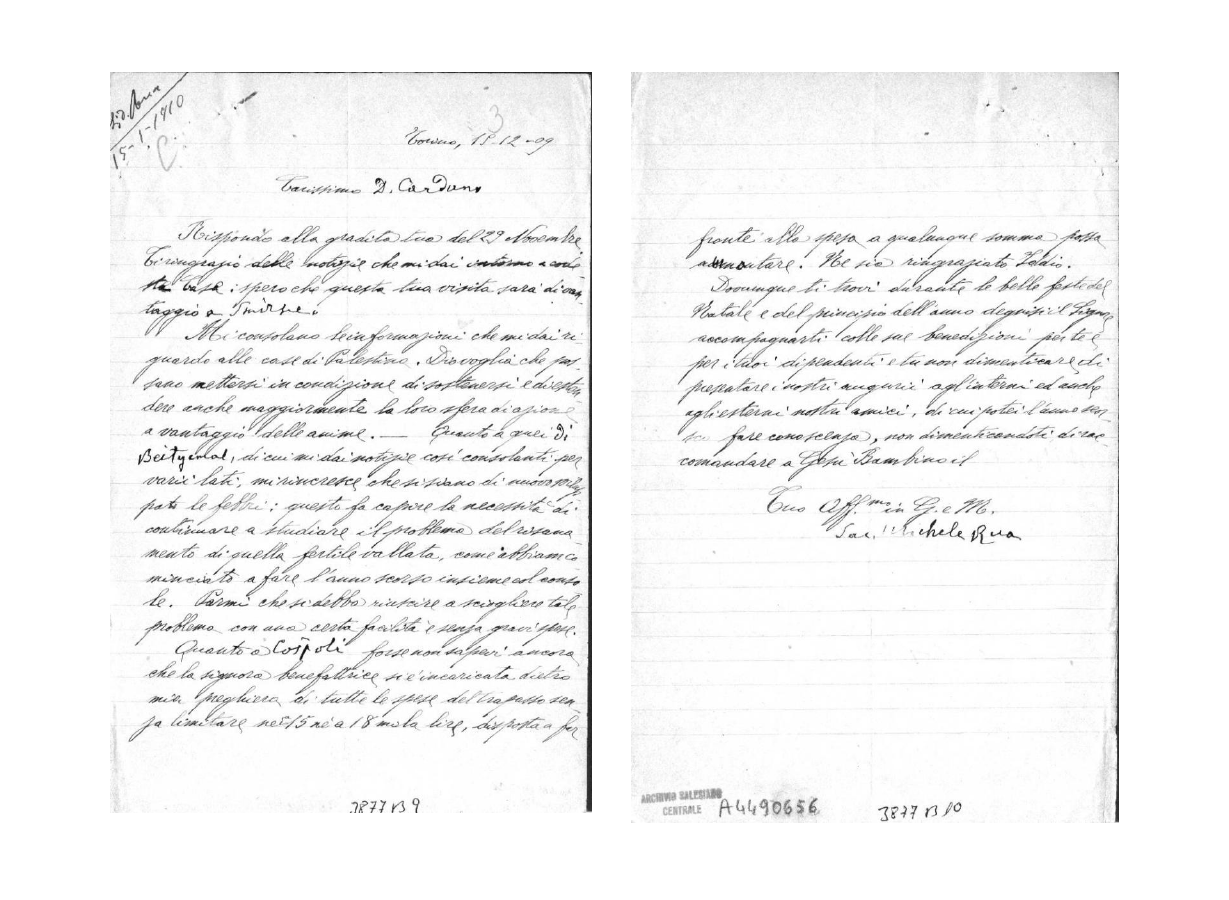 15-1-1910
3
Torino, 13-12-09
C.
Carissimo D. Cardano
Rispondo alla gradita tua del 29 Novembre
Ti ringrazio delle notizie che mi dai intorno a code
sta Casa; spero che questa tua visita sarà di van
taggio a Smirne.
Mi consolano le informazioni che mi dai ri
guardo alle case di Palestina. Dio voglia che pos-
sano mettersi in condizione di sostenersi e di esten
dere anche maggiormente la loro sfera di azione
a vantaggio delle anime. — Quanto a quei di
Beitgemal, di cui mi dai notizie così consolanti per
varii lati, mi rincresce che si siano di nuovo svilup
pate le febbri; questo fa capire la necessità di
continuare a studiare il problema del risana
mento di quella fertile vallata, come abbiam co
minciato a fare l'anno scorso insieme col conso
le. Parmi che si debba riuscire a sciogliere tale
problema con una certa facilità e senza gravi spese.
Quanto a Cospoli forse non sapevi ancora
che la signora benefattrice si è incaricata dietro
mia preghiera di tutte le spese del trapasso sen
za limitare nè a 15 nè a 18 mila lire, disposta a far
3877 B 9
fronte alla spesa a qualunque somma possa
ammontare. Ne sia ringraziato Iddio.
Dovunque ti trovi durante le belle feste del
Natale e del principio dell'anno degnisi il Signore
accompagnarti colle sue benedizioni per te e
per i tuoi dipendenti e tu non dimenticare di
presentare i nostri augurii agl'interni ed anche
agli esterni nostri amici, di cui potei l'anno scor
so fare conoscenza, non dimenticandoti di rac
comandare a Gesù Bambino il
Tuo Aff.mo in G. e M.
Sac. Michele Rua
ARCHIVIO SALESIANO
CENTRALE
A4490656
3877 B 10